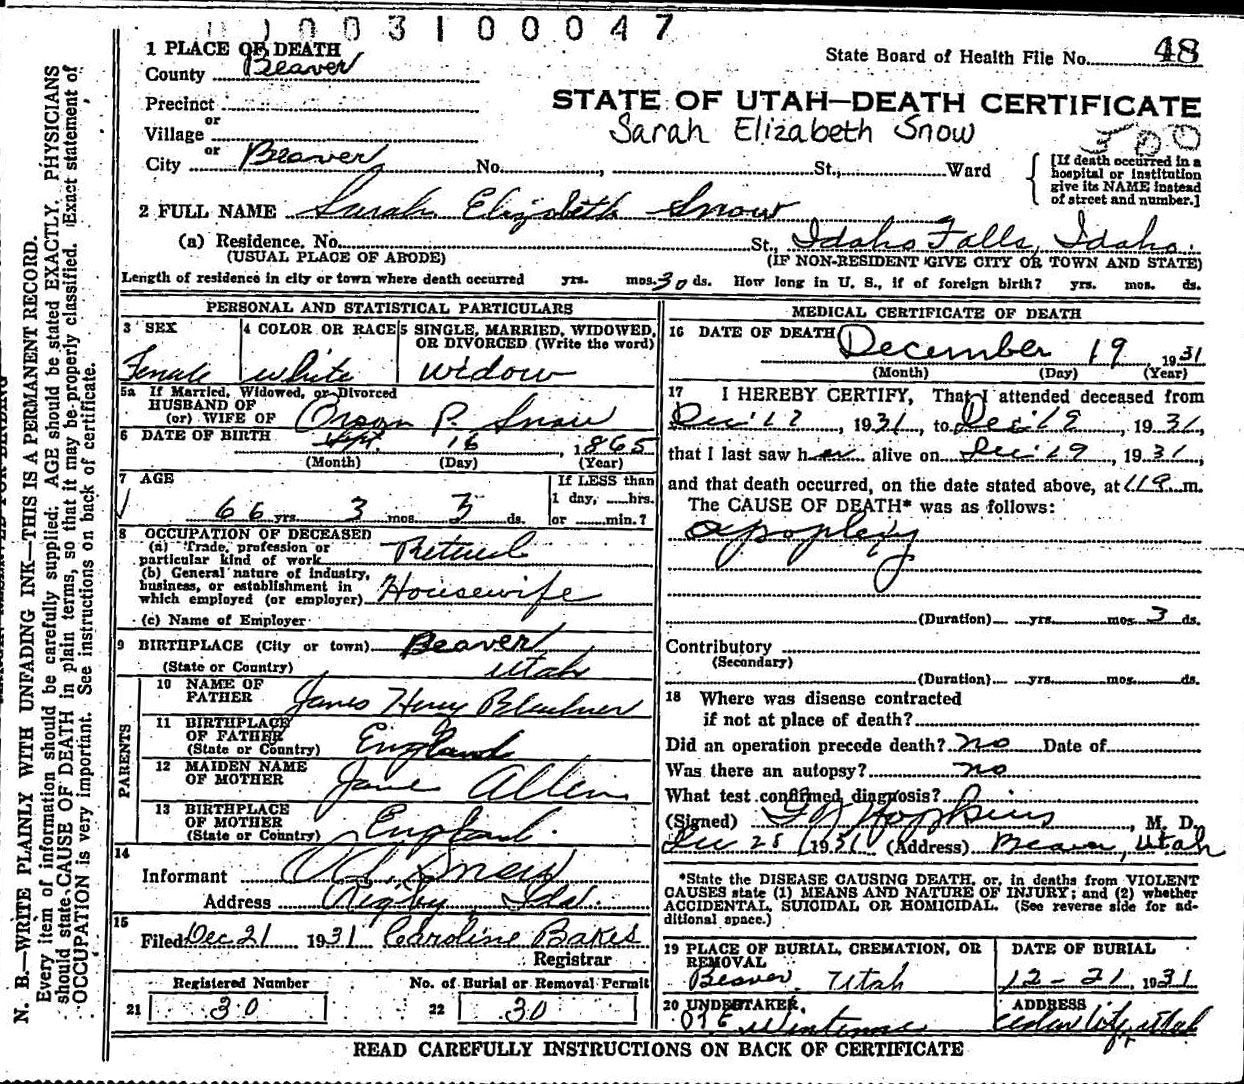 003100047
1 PLACE OF DEATH
County Beaver
State Board of Health File No. 48
Precinct
or
Village
or
City Beaver No. , St., Ward
STATE OF UTAH—DEATH CERTIFICATE
Sarah Elizabeth Snow
500
[If death occurred in a
hospital or institution
give its NAME instead
of street and number.]
2 FULL NAME Sarah Elizabeth Snow
(a) Residence. No. St., Idaho Falls, Idaho.
(USUAL PLACE OF ABODE) (IF NON-RESIDENT GIVE CITY OR TOWN AND STATE)
Length of residence in city or town where death occurred yrs. mos. 30 ds. How long in U. S., if of foreign birth? yrs. mos. ds.
PERSONAL AND STATISTICAL PARTICULARS
3 SEX
Female
4 COLOR OR RACE
white
5 SINGLE, MARRIED, WIDOWED,
OR DIVORCED (Write the word)
widow
5a If Married, Widowed, or Divorced
HUSBAND OF
(or) WIFE OF Orson P. Snow
6 DATE OF BIRTH Sept. 16, 1865
(Month) (Day) (Year)
7 AGE
66 yrs. 3 mos. 3 ds.
If LESS than
1 day, hrs.
or min.?
8 OCCUPATION OF DECEASED
(a) Trade, profession or
particular kind of work Retired
(b) General nature of industry,
business, or establishment in
which employed (or employer) Housewife
(c) Name of Employer
9 BIRTHPLACE (City or town) Beaver
(State or Country) Utah
PARENTS
10 NAME OF
FATHER James Henry
11 BIRTHPLACE
OF FATHER
(State or Country) England
12 MAIDEN NAME
OF MOTHER Jane Allen
13 BIRTHPLACE
OF MOTHER
(State or Country) England.
14
Informant Snow
Address Rigby, Ida.
15
Filed: Dec. 21 1931 Caroline Bakes
Registrar
Registered Number
21 30
No. of Burial or Removal Permit
22 30
MEDICAL CERTIFICATE OF DEATH
16 DATE OF DEATH December 19 1931
(Month) (Day) (Year)
17 I HEREBY CERTIFY, That I attended deceased from
Dec 17, 1931, to Dec 19, 1931,
that I last saw her alive on Dec 19, 1931,
and that death occurred, on the date stated above, at m.
The CAUSE OF DEATH* was as follows:
apoplexy
(Duration) yrs. mos. 3 ds.
Contributory
(Secondary)
(Duration) yrs. mos. ds.
18 Where was disease contracted
if not at place of death?
Did an operation precede death? no Date of
Was there an autopsy? no
What test confirmed diagnosis?
(Signed) Hopkins, M. D.
Dec 28 1931 (Address) Beaver, Utah
*State the DISEASE CAUSING DEATH, or, in deaths from VIOLENT
CAUSES state (1) MEANS AND NATURE OF INJURY; and (2) whether
ACCIDENTAL, SUICIDAL OR HOMICIDAL. (See reverse side for ad-
ditional space.)
19 PLACE OF BURIAL, CREMATION, OR
REMOVAL
Beaver, Utah
DATE OF BURIAL
12-21, 1931
20 UNDERTAKER,
ADDRESS
Cedar City, Utah
READ CAREFULLY INSTRUCTIONS ON BACK OF CERTIFICATE
N. B.—WRITE PLAINLY WITH UNFADING INK—THIS IS A PERMANENT RECORD.
Every item of information should be carefully supplied. AGE should be stated EXACTLY. PHYSICIANS
should state CAUSE OF DEATH in plain terms, so that it may be properly classified. Exact statement of
OCCUPATION is very important. See instructions on back of certificate.